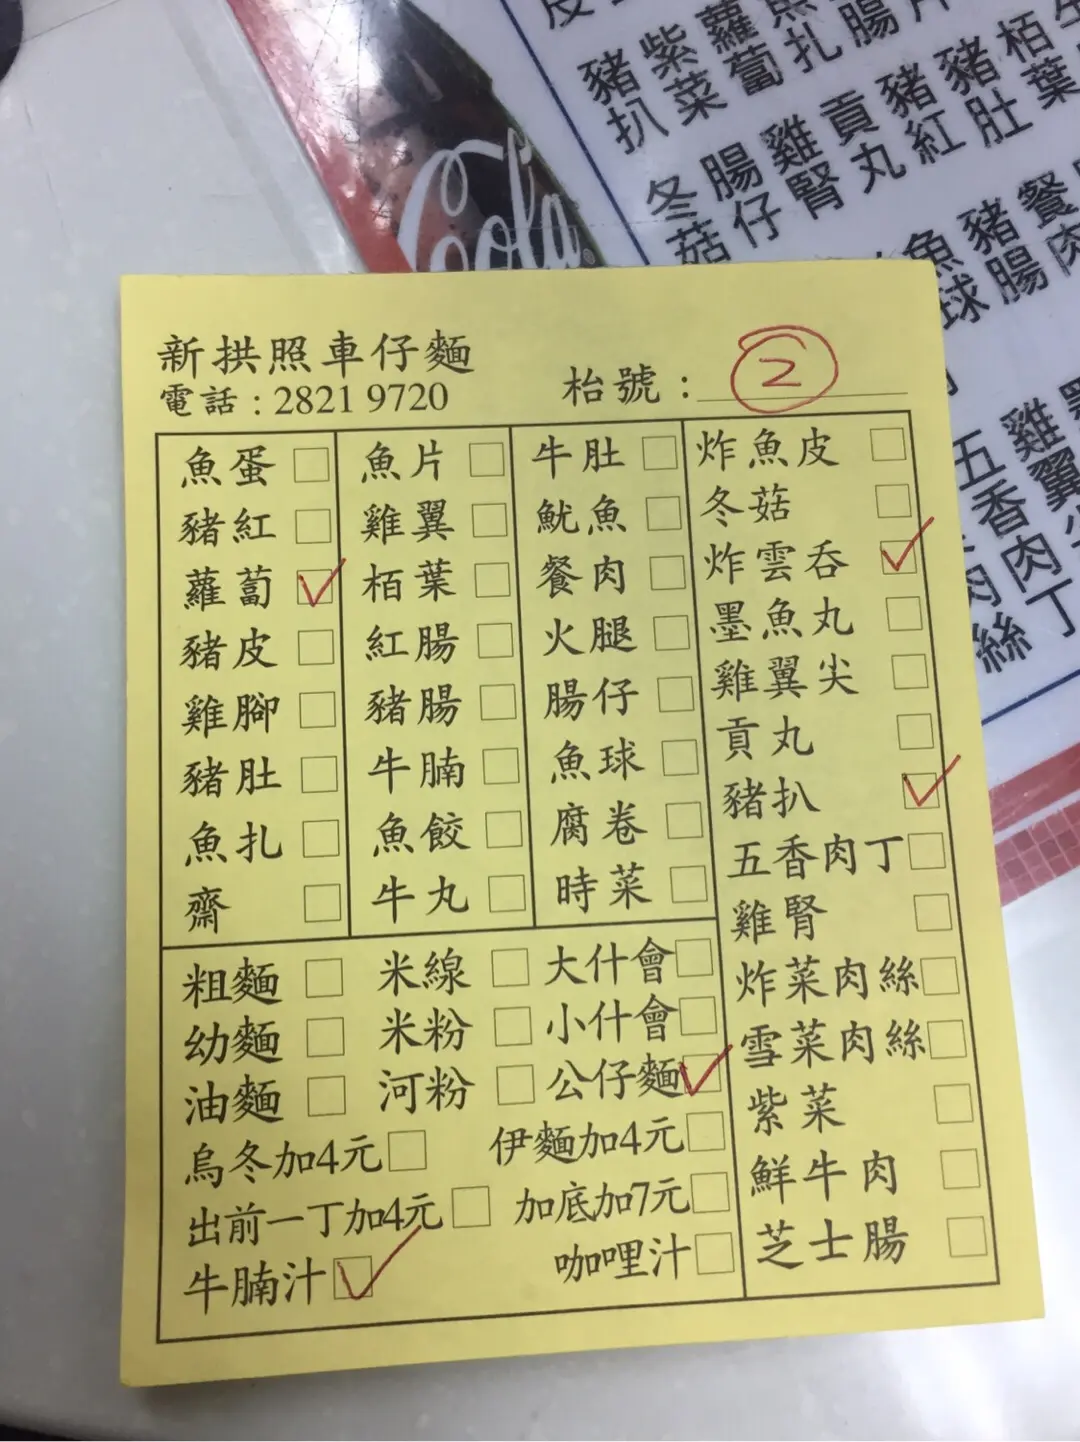 Cola
豬扒 紫菜 蘿蔔 魚扎
冬菇 腸仔 雞腎 貢丸 豬紅 豬肚
魚球 豬腸 餐肉
五香肉丁
新拱照車仔麵
電話:2821 9720 枱號: 2
魚蛋 魚片 牛肚 炸魚皮
豬紅 雞翼 魷魚 冬菇
蘿蔔 ✓ 栢葉 餐肉 炸雲吞 ✓
豬皮 紅腸 火腿 墨魚丸
雞腳 豬腸 腸仔 雞翼尖
豬肚 牛腩 魚球 貢丸
魚扎 魚餃 腐卷 豬扒 ✓
齋 牛丸 時菜 五香肉丁
雞腎
粗麵 米線 大什會 炸菜肉絲
幼麵 米粉 小什會 雪菜肉絲
油麵 河粉 公仔麵 ✓ 紫菜
烏冬加4元 伊麵加4元 鮮牛肉
出前一丁加4元 加底加7元 芝士腸
牛腩汁 ✓ 咖哩汁